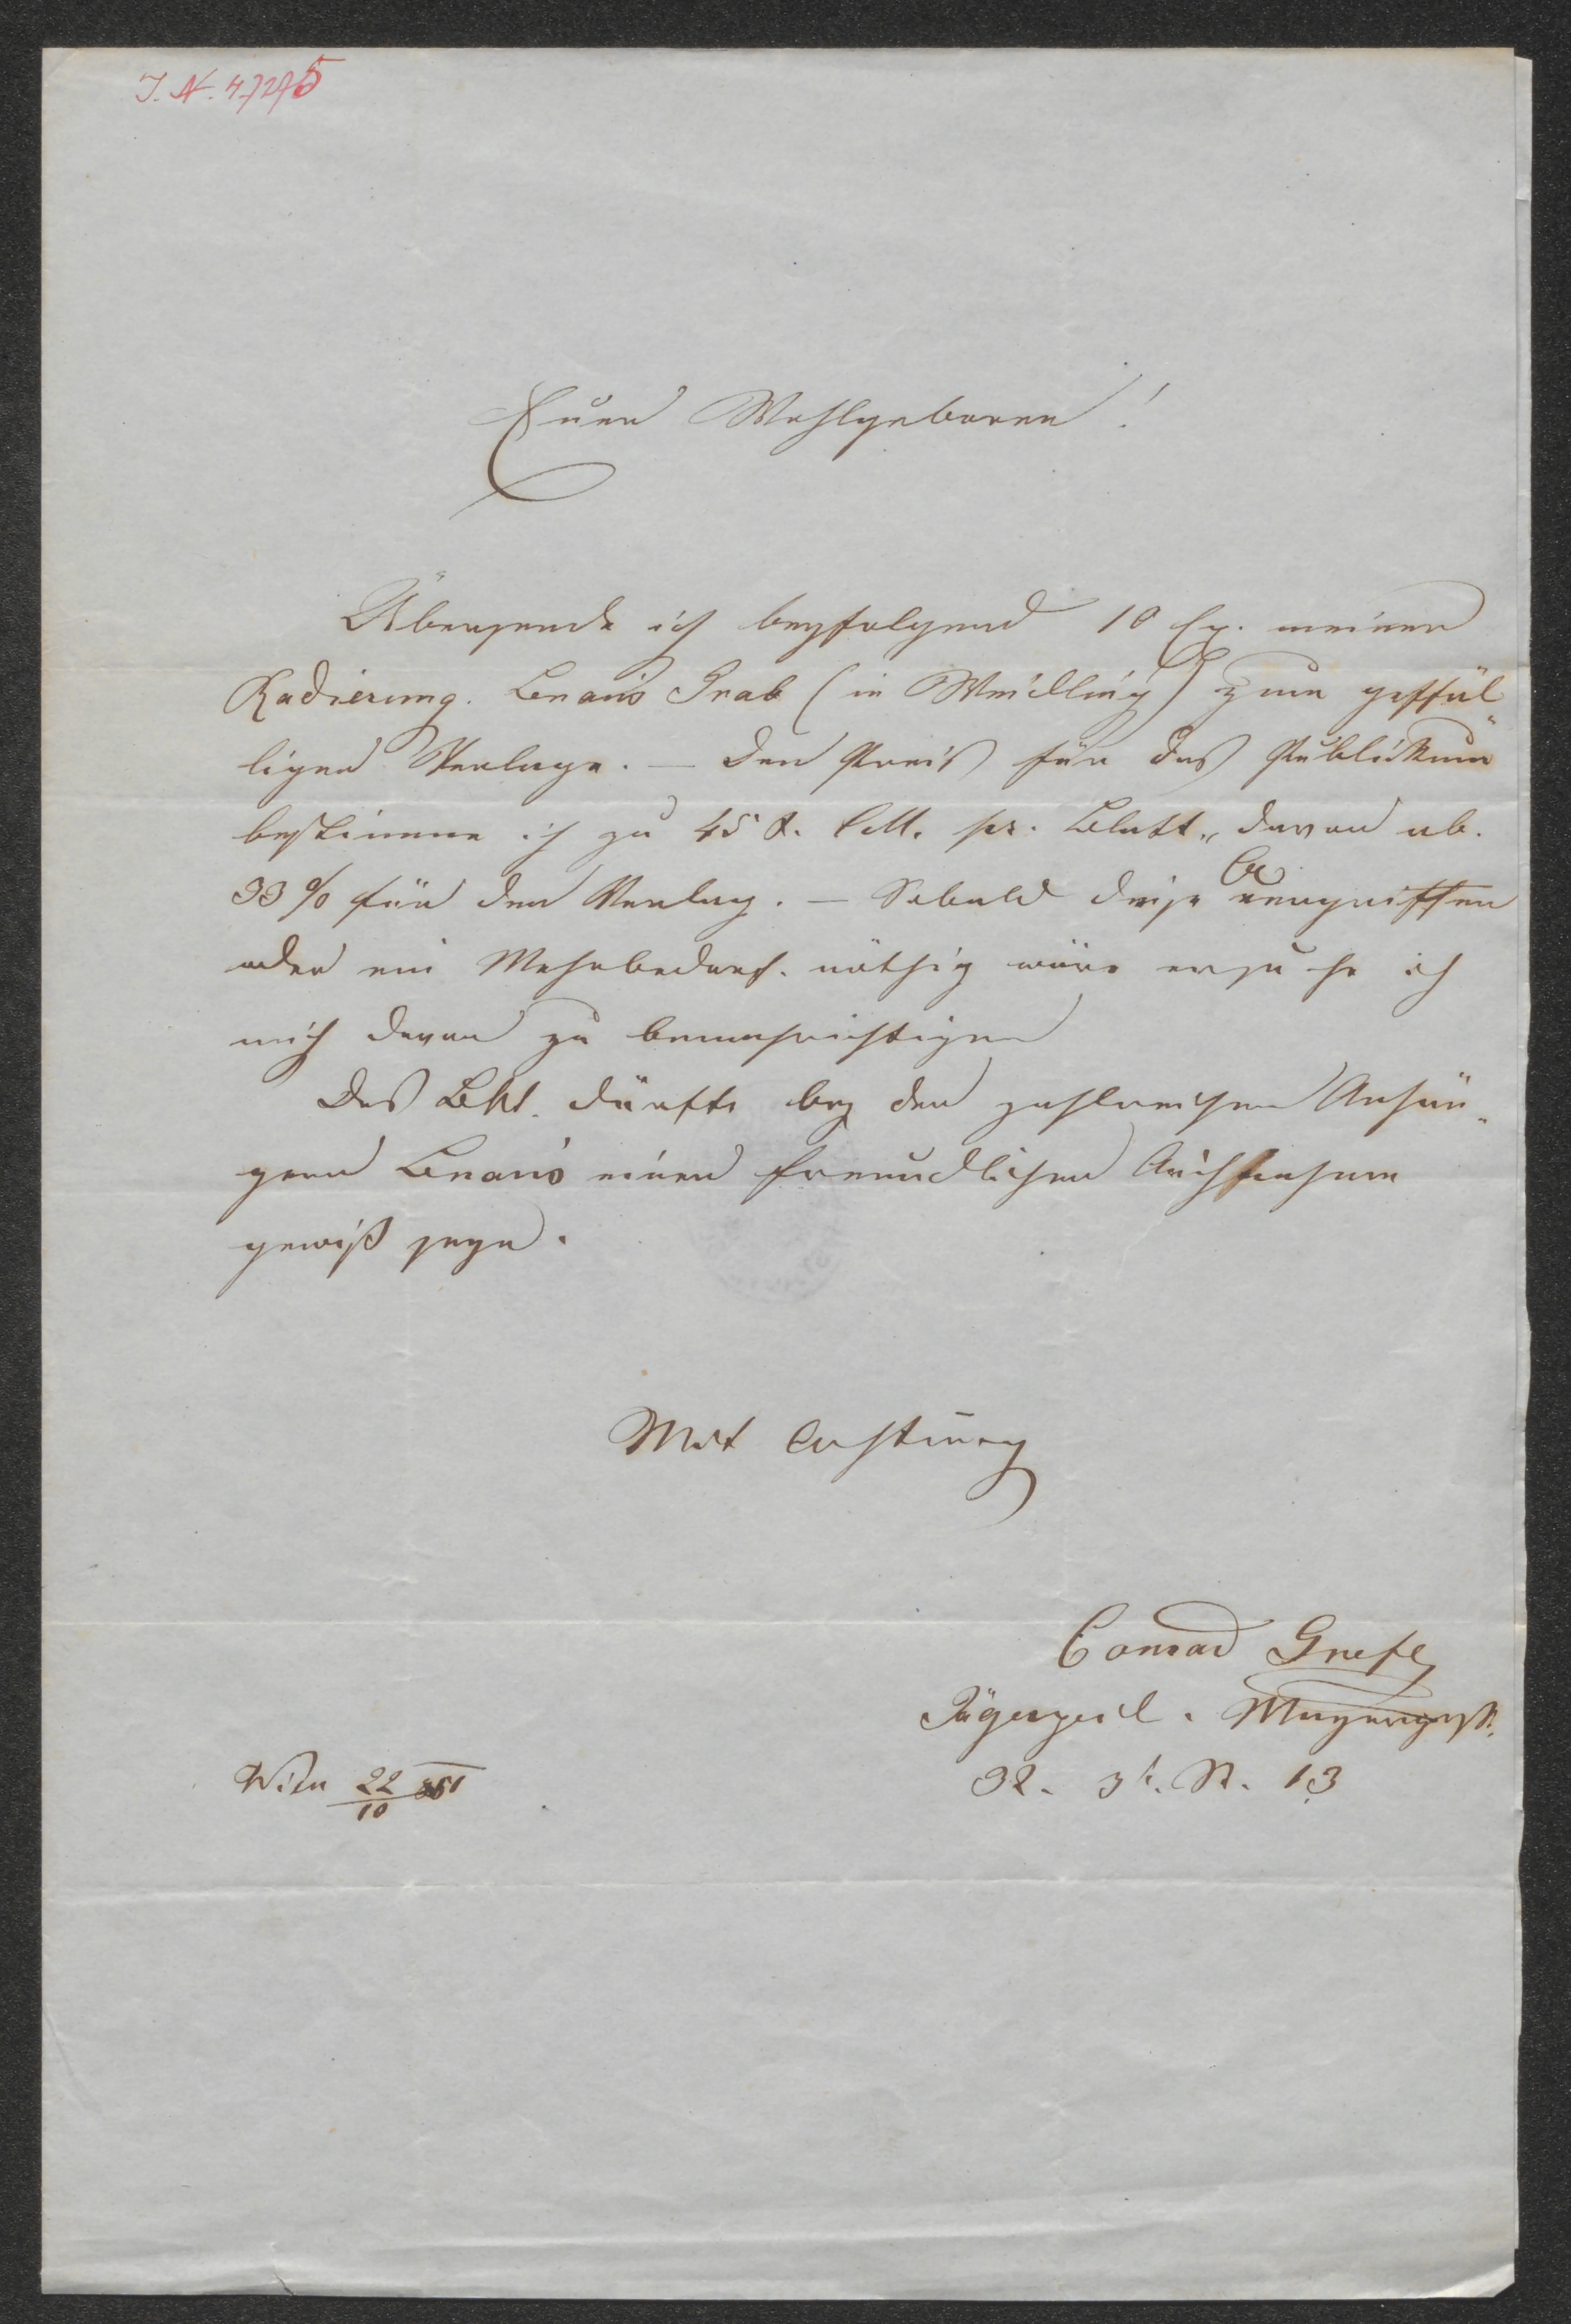 J. N. 47275
Euer Wohlgeboren!
Übersende ich beyfolgend 10 Ex. meiner
Radierung. Lenau's Grab (in Weidling) zum gefäl„
ligen Verlage. — Den Preis für das Publikum
bestimme ich zu 45 x. CM. pr. Blatt„ davon ab.
33 % für den Verlag. — Sobald diese vergriffen
oder ein Mehrbedarf. nöthig wäre ersuche ich
mich davon zu benachrichtigen
Das Blt. dürfte bey den zahlreichen Anhän„
gern Lenau's einer freundlichen Aufnahme
gewiß seyn.
Mit Achtung
Conrad Grefe
Jägerzeil.
32. 3t. St. 13
Wien 22/10 851